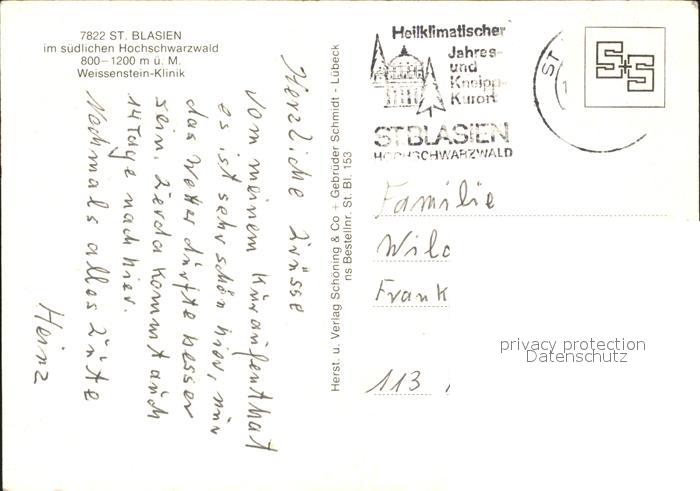 7822 ST. BLASIEN
im südlichen Hochschwarzwald
800–1200 m ü. M.
Weissenstein-Klinik
Herzliche Grüsse
vom meinem Kuraufenthat
es ist sehr schön hier, nur
das Wetter dürfte besser
sein. Gerda kommt auch
14 Tage nach hier.
Nochmals alles Gute
Heinz
Herst. u. Verlag Schöning & Co + Gebrüder Schmidt - Lübeck
ns Bestellnr. St. Bl. 153
Heilklimatischer
Jahres-
und
Kneipp-
Kurort
ST.BLASIEN
HOCHSCHWARZWALD
ST
S+S
Familie
Wil
Frank
113
privacy protection
Datenschutz